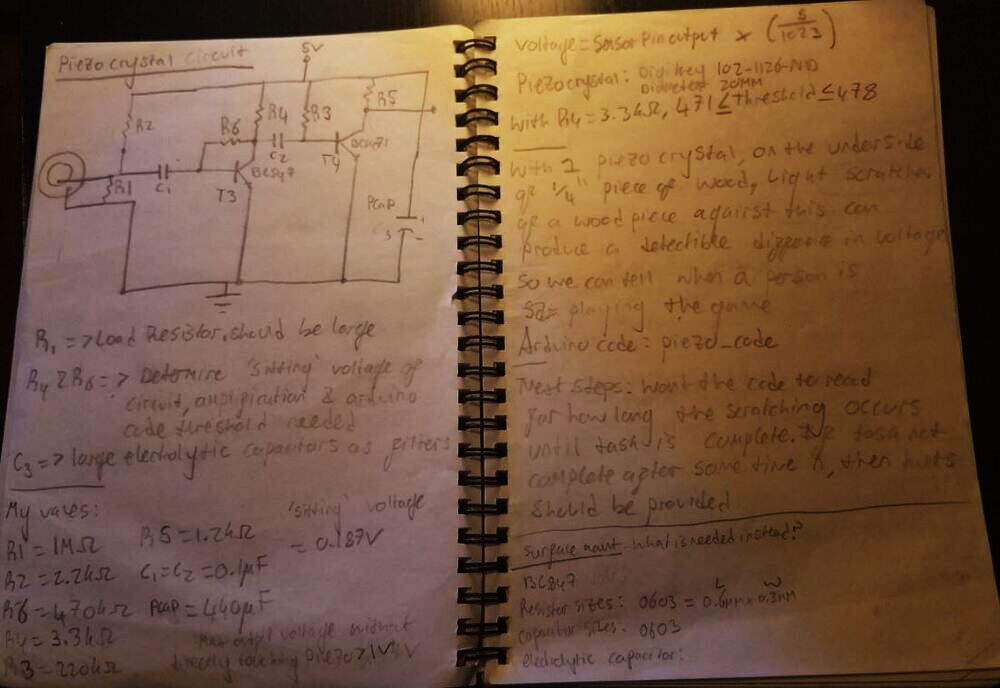 Piezo crystal circuit
5V
R2
R6
R4
R3
R5
C2
BC547
T4
R1
C1
T3
Pcap
C3
+
-
R1 => Load Resistor, should be large
R4 & R6 => Determine 'sitting' voltage of
circuit, amplification & arduino
code threshold needed
C3 => large electrolytic capacitors as filters
My values:
'sitting' voltage
= 0.187V
R1 = 1MΩ
R5 = 1.2kΩ
R2 = 2.2kΩ
C1=C2=0.1µF
R6 = 470kΩ
Pcap = 440µF
R4 = 3.3kΩ
R3 = 220kΩ
voltage without
directly touching Piezo > 1V
voltage = SensorPinoutput × (5/1023)
Piezocrystal: Digikey 102-1126-ND
Diameter 20MM
with R4 = 3.3kΩ, 471 ≤ threshold ≤ 478
With 1 piezo crystal, on the underside
of 1/4" piece of wood, light scratches
of a wood piece against this can
produce a detectible difference in voltage
so we can tell when a person is
playing the game
Arduino code = piezo_code
Next steps: want the code to read
for how long the scratching occurs
until task is complete. If task not
complete after some time n, then hints
should be provided
Surface mount. what is needed instead?
BC847
L W
Resistor sizes: 0603 = 0.6mm x 0.3mm
Capacitor sizes: 0603
electrolytic capacitor: